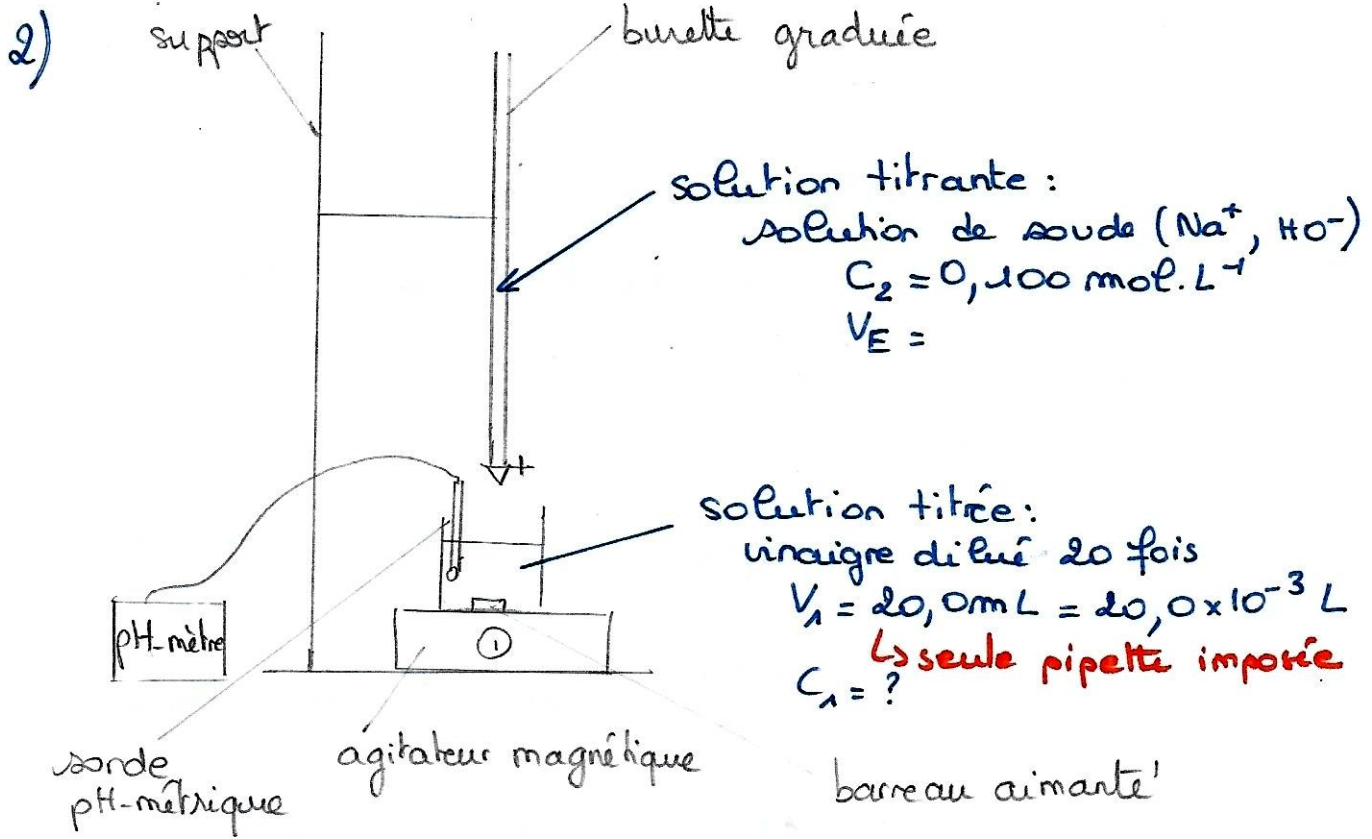 2)
support
burette graduée
solution titrante :
solution de soude (Na⁺, HO⁻)
C₂ = 0,100 mol.L⁻¹
V_E =
solution titrée :
vinaigre dilué 20 fois
V₁ = 20,0mL = 20,0 x 10⁻³ L
↳ seule pipette imposée
C₁ = ?
pH-mètre
sonde
pH-métrique
agitateur magnétique
barreau aimanté